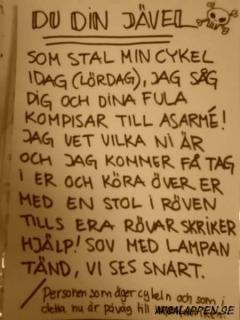 DU DIN JÄVEL
SOM STAL MIN CYKEL
IDAG (LÖRDAG), JAG SÅG
DIG OCH DINA FULA
KOMPISAR TILL ASARMÉ!
JAG VET VILKA NI ÄR
OCH JAG KOMMER FÅ TAG
I ER OCH KÖRA ÖVER ER
MED EN STOL I RÖVEN
TILLS ERA RÖVAR SKRIKER
HJÄLP! SOV MED LAMPAN
TÄND, VI SES SNART.
/ Personen som äger cykeln och som
detta nu är påväg till
ARGALAPPEN.SE